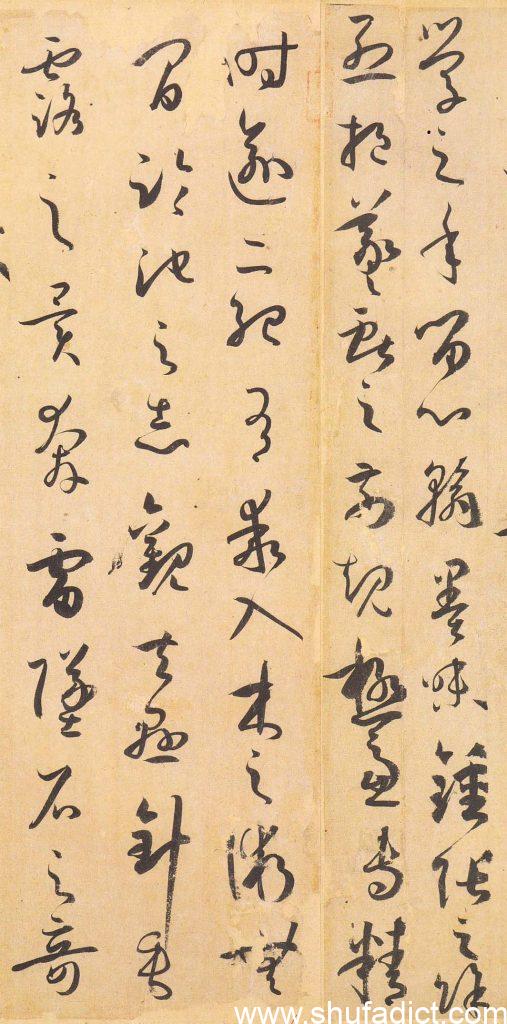 学之年留心翰墨味鍾張之餘
烈挹羲獻之前規極慮專精
時逾二紀有乖入木之術無
間臨池之志觀夫懸針垂
露之異奔雷墜石之奇
www.shufadict.com